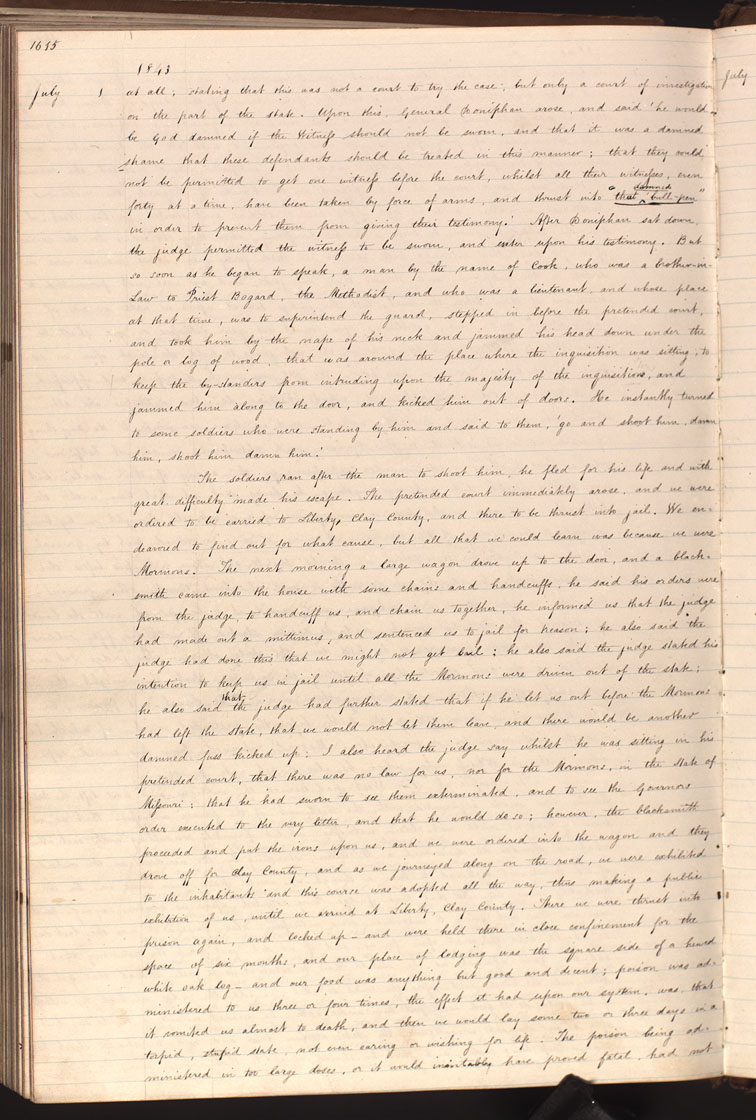 1615
1843
July 1 at all; stating that this was not a court to try the case, but only a court of investigation
on the part of the state. Upon this, General Doniphan arose, and said 'he would
be God damned if the Witness should not be sworn, and that it was a damned
shame that these defendants should be treated in this manner; that they could
not be permitted to get one witness before the court, whilst all their witnesses, even
forty at a time, have been taken by force of arms, and thrust into "that damned 'bull-pen"
in order to prevent them from giving their testimony.' After Doniphan sat down,
the judge permitted the witness to be sworn, and enter upon his testimony. But
so soon as he began to speak, a man by the name of Cook, who was a brother-in-
Law to Priest Bogard, the Methodist, and who was a lieutenant, and whose place
at that time, was to superintend the guard, stepped in before the pretended court,
and took him by the nape of his neck and jammed his head down under the
pole or log of wood, that was around the place where the inquisition was sitting, to
keep the by-standers from intruding upon the majesty of the inquisitors, and
jammed him along to the door, and kicked him out of doors. He instantly turned
to some soldiers who were standing by him and said to them, go and shoot him, damn
him, shoot him damn him.'
The soldiers ran after the man to shoot him, he fled for his life and with
great difficulty made his escape. The pretended court immediately arose, and we were
ordered to be carried to Liberty, Clay County, and there to be thrust into jail. We en-
deavored to find out for what cause, but all that we could learn was because we were
Mormons. The next morning a large wagon drove up to the door, and a black-
smith came into the house with some chains and handcuffs, he said his orders were
from the judge, to handcuff us, and chain us together, he informed us that the judge
had made out a mittimus, and sentenced us to jail for treason; he also said the
judge had done this that we might not get bail; he also said the judge stated his
intention to keep us in jail until all the Mormons were driven out of the state;
he also said that the judge had further stated that if he let us out before the Mormons
had left the state, that we would not let them leave, and there would be another
damned fuss kicked up; I also heard the judge say whilst he was sitting in his
pretended court, that there was no law for us, nor for the Mormons, in the state of
Missouri; that he had sworn to see them exterminated, and to see the Governors
order executed to the very letter, and that he would do so; however, the blacksmith
proceeded and put the irons upon us, and we were ordered into the wagon and they
drove off for Clay County, and as we journeyed along on the road, we were exhibited
to the inhabitants and this course was adopted all the way, thus making a public
exhibition of us, until we arrived at Liberty, Clay County. There we were thrust into
prison again, and locked up – and were held there in close confinement for the
space of six months, and our place of lodging was the square side of a hewed
white oak log – and our food was anything but good and decent; poison was ad-
ministered to us three or four times, the effect it had upon our system, was, that
it vomited us almost to death, and then we would lay some two or three days in a
torpid, stupid state, not even caring or wishing for life. The poison being ad-
ministered in too large doses, or it would inevitably have proved fatal, had not
July